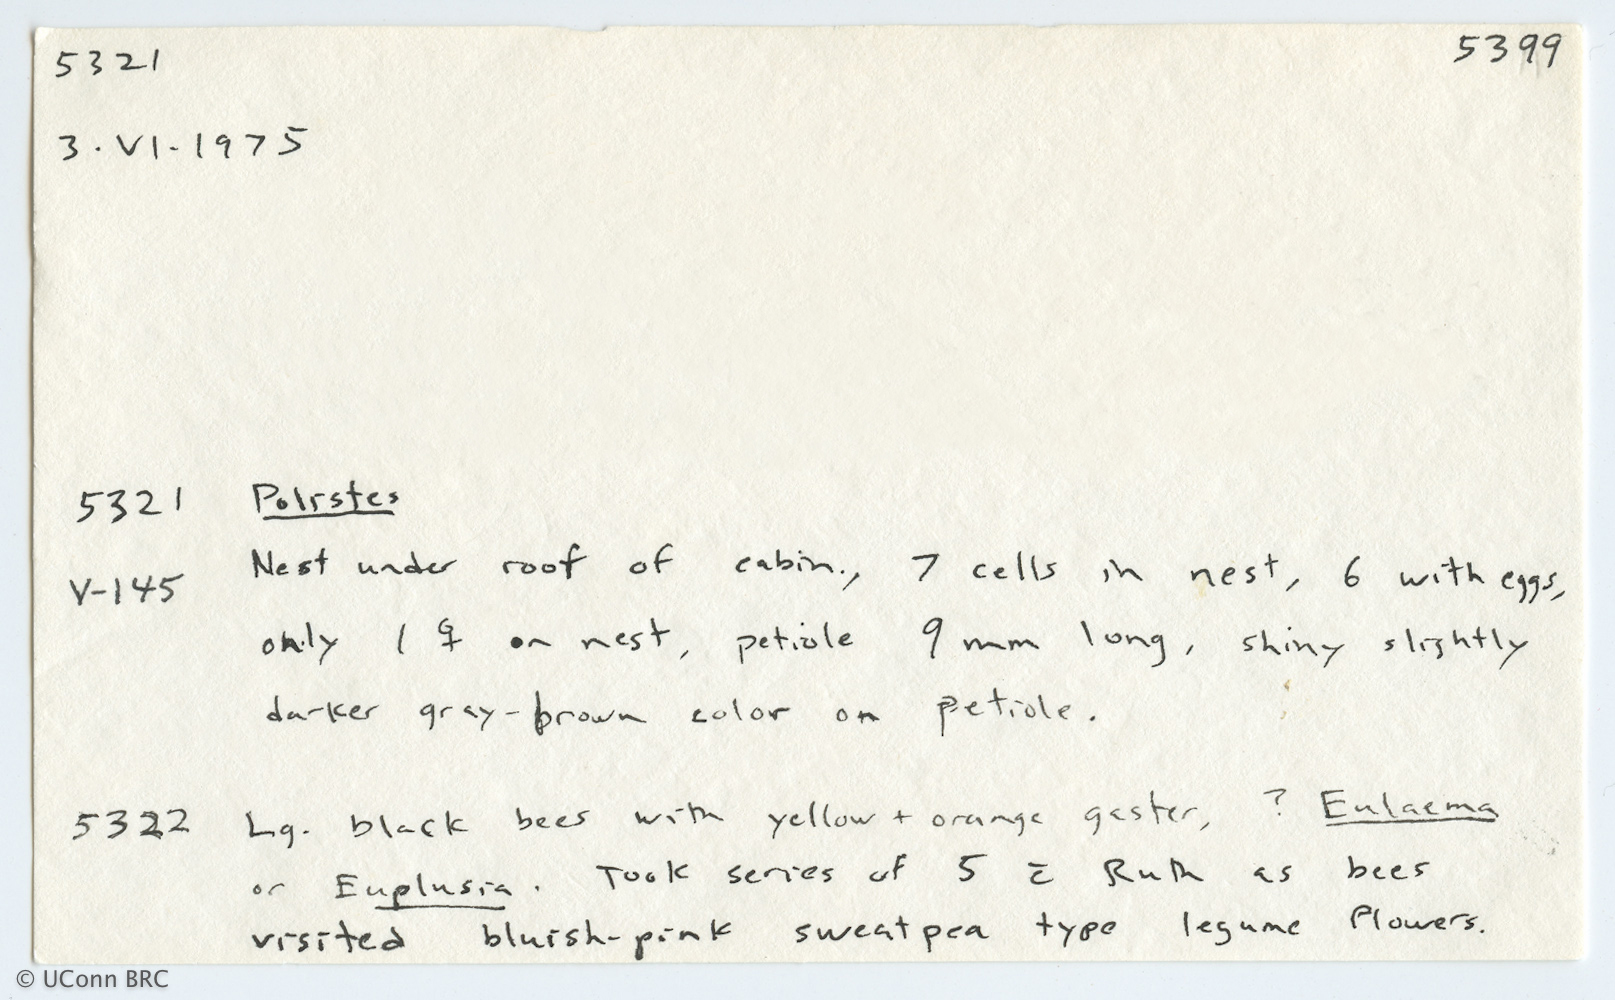 5321 5399
3·VI-1975
5321 Polistes
Nest under roof of cabin., 7 cells in nest, 6 with eggs,
V-145
only 1 ♀ on nest, petiole 9 mm long, shiny slightly
darker gray-brown color on petiole.
5322 Lg. black bees with yellow + orange gaster, ? Eulaema
or Euplusia. Took series of 5 c̄ Ruth as bees
visited bluish-pink sweatpea type legume flowers.
© UConn BRC